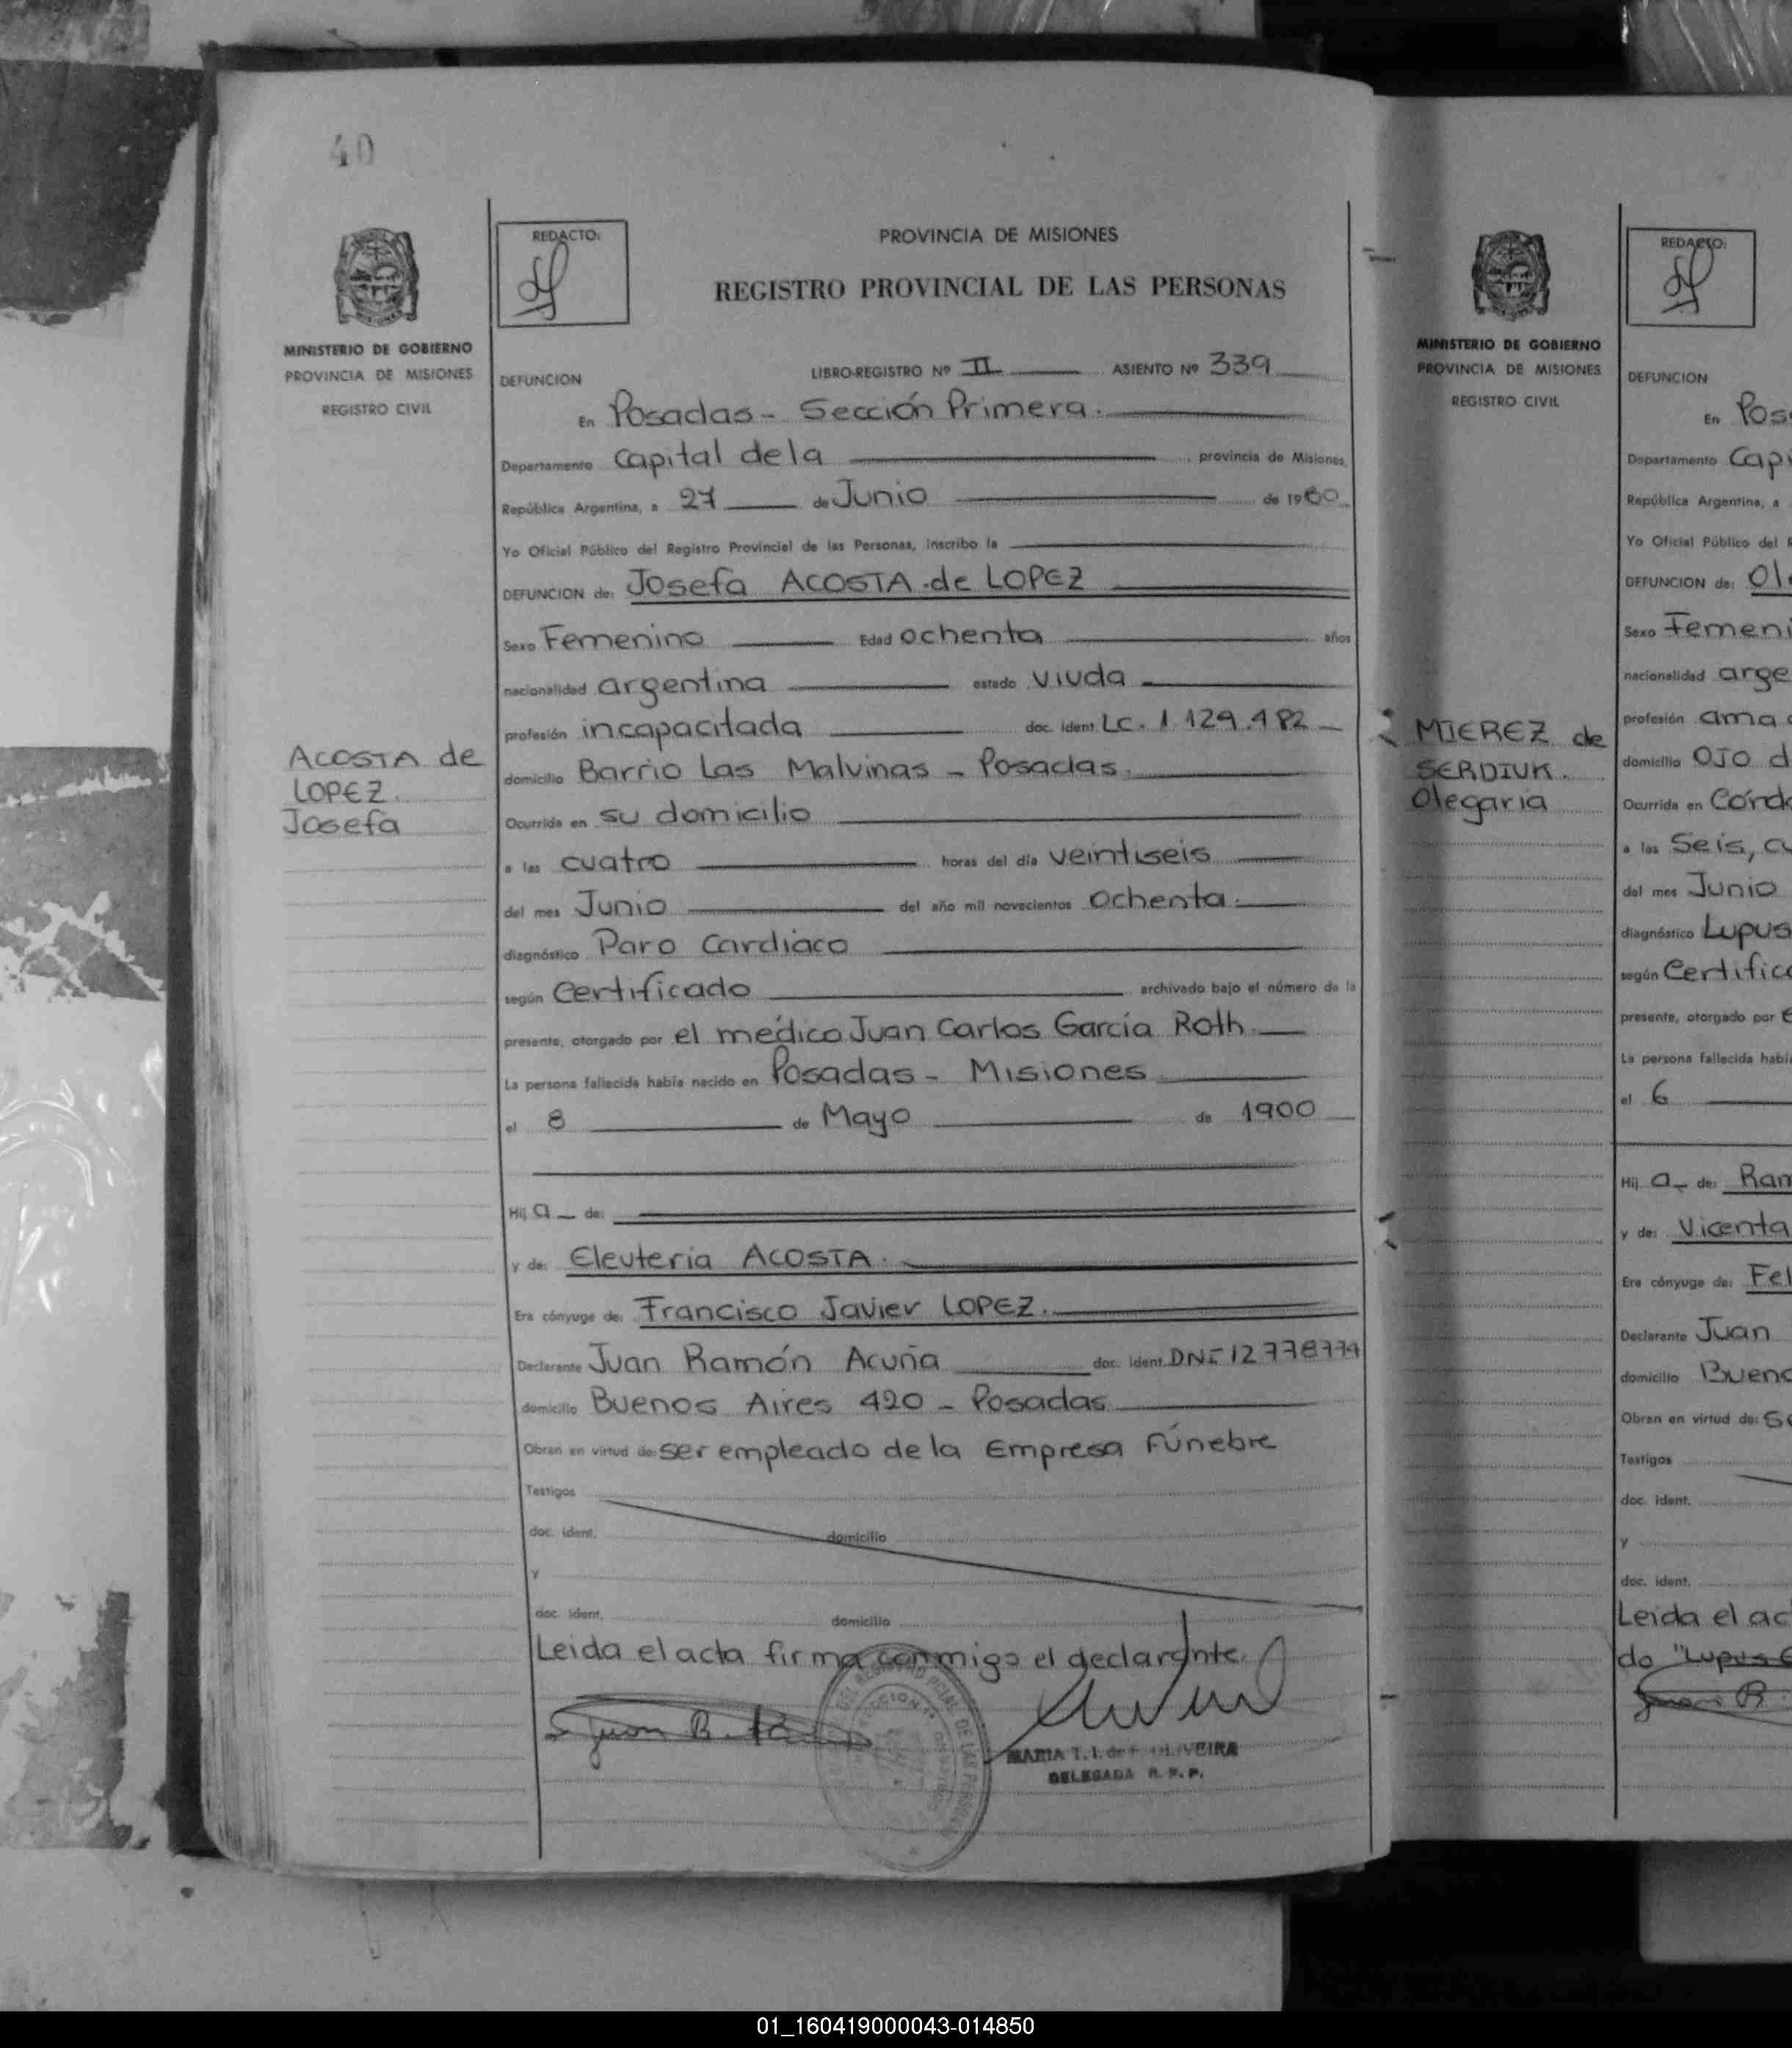 40
MINISTERIO DE GOBIERNO
PROVINCIA DE MISIONES
REGISTRO CIVIL
ACOSTA de
LOPEZ.
Josefa
REDACTO:
PROVINCIA DE MISIONES
REGISTRO PROVINCIAL DE LAS PERSONAS
LIBRO-REGISTRO Nº II ASIENTO Nº 339
DEFUNCION
En Posadas - Sección Primera.
Departamento Capital de la provincia de Misiones,
República Argentina, a 27 de Junio de 1980
Yo Oficial Público del Registro Provincial de las Personas, inscribo la
DEFUNCION de: Josefa ACOSTA de LOPEZ
Sexo Femenino Edad ochenta años
nacionalidad argentina estado viuda
profesión incapacitada doc. ident. LC. 1.129.982
domicilio Barrio Las Malvinas - Posadas.
Ocurrida en su domicilio
a las cuatro horas del día veintiseis
del mes Junio del año mil novecientos ochenta.
diagnóstico Paro Cardiaco
según Certificado archivado bajo el número de la
presente, otorgado por el médico Juan Carlos García Roth
La persona fallecida había nacido en Posadas - Misiones
el 8 de Mayo de 1900
Hij a de:
y de: Eleuteria ACOSTA.
Era cónyuge de: Francisco Javier LOPEZ.
Declarante Juan Ramón Acuña doc. ident. DNI 12778779
domicilio Buenos Aires 420 - Posadas
Obran en virtud de: ser empleado de la Empresa Fúnebre
Testigos
doc. ident. domicilio
y
doc. ident. domicilio
Leida el acta firma conmigo el declarante.
MARIA T. I. de OLIVEIRA
DELEGADA R. P. P.
MINISTERIO DE GOBIERNO
PROVINCIA DE MISIONES
REGISTRO CIVIL
MIEREZ de
SERDIUK.
Olegaria
REDACTO:
DEFUNCION
En Pos
Departamento Capi
República Argentina, a
Yo Oficial Público del R
DEFUNCION de: Ole
Sexo Femeni
nacionalidad arge
profesión ama
domicilio OJO d
Ocurrida en Córdo
a las Seis, cu
del mes Junio
diagnóstico Lupus
según Certific
presente, otorgado por e
La persona fallecida habí
el 6
Hij a de: Ram
y de: Vicenta
Era cónyuge de: Fel
Declarante Juan
domicilio Bueno
Obran en virtud de: Se
Testigos
doc. ident.
y
doc. ident.
Leida el ac
do "Lupus E
01_160419000043-014850